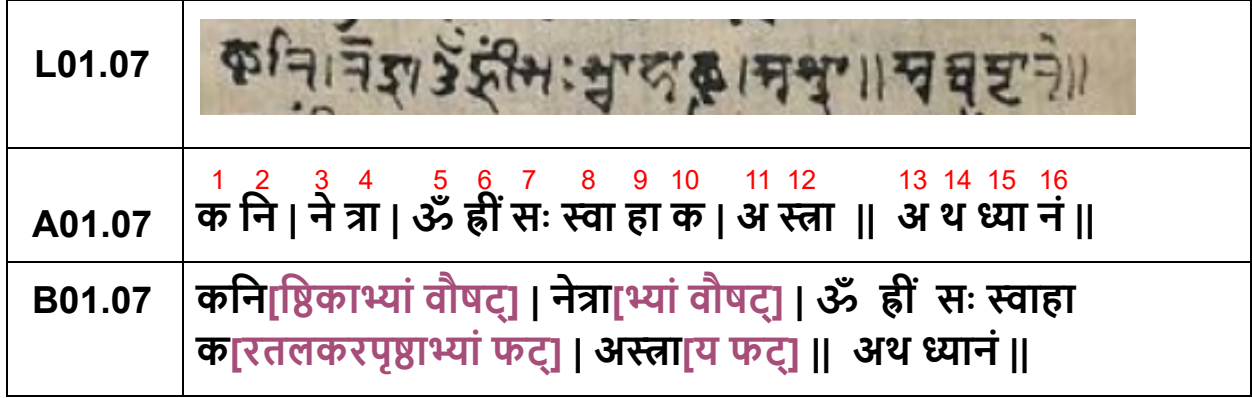 L01.07
1 2 3 4 5 6 7 8 9 10 11 12 13 14 15 16
A01.07 क नि | ने त्रा | ॐ ह्रीं सः स्वा हा क | अ स्त्रा || अ थ ध्या नं ||
B01.07 कनि[ष्ठिकाभ्यां वौषट्] | नेत्रा[भ्यां वौषट्] | ॐ ह्रीं सः स्वाहा
क[रतलकरपृष्ठाभ्यां फट्] | अस्त्रा[य फट्] || अथ ध्यानं ||